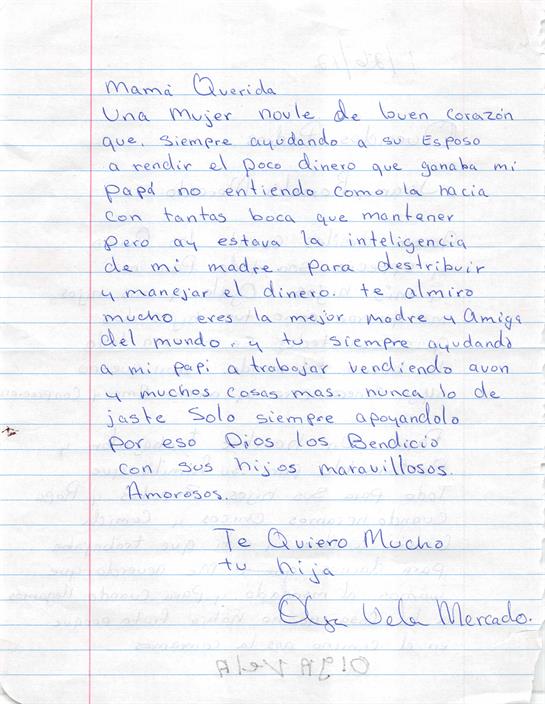 Mamá Querida
Una Mujer noule de buen corazón
que. siempre ayudando a su Esposo
a rendir el poco dinero que ganaba mi
papá no entiendo como la hacia
con tantas boca que mantener
pero ay estava la inteligencia
de mi madre para destribuir
y manejar el dinero. te almiro
mucho eres la mejor madre y Amiga
del mundo. y tu siempre ayudando
a mi papi a trabajar vendiendo avon
y muchos cosas mas. nunca lo de
jaste Solo siempre apoyandolo
por eso Dios los Bendicio
con sus hijos maravillosos.
Amorosos.
Te Quiero Mucho
tu hija
Olga Vela Mercado.
Olga Vela